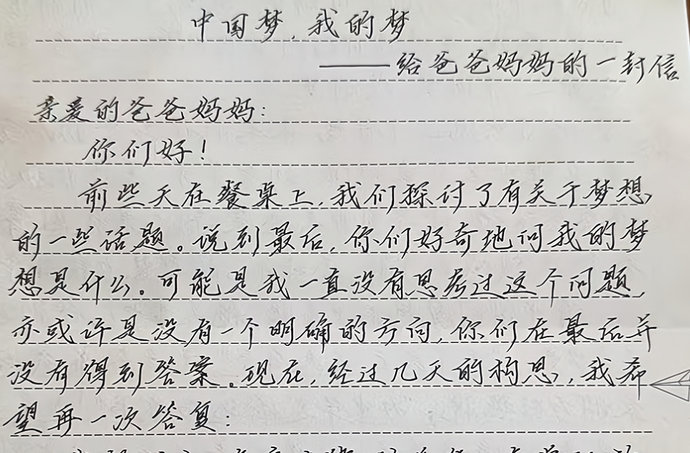 中国梦,我的梦
——给爸爸妈妈的一封信
亲爱的爸爸妈妈:
你们好!
前些天在餐桌上,我们探讨了有关于梦想
的一些话题。说到最后,你们好奇地问我的梦
想是什么。可能是我一直没有思考过这个问题,
亦或许是没有一个明确的方向,你们在最后并
没有得到答案。现在,经过几天的构思,我希
望再一次答复: